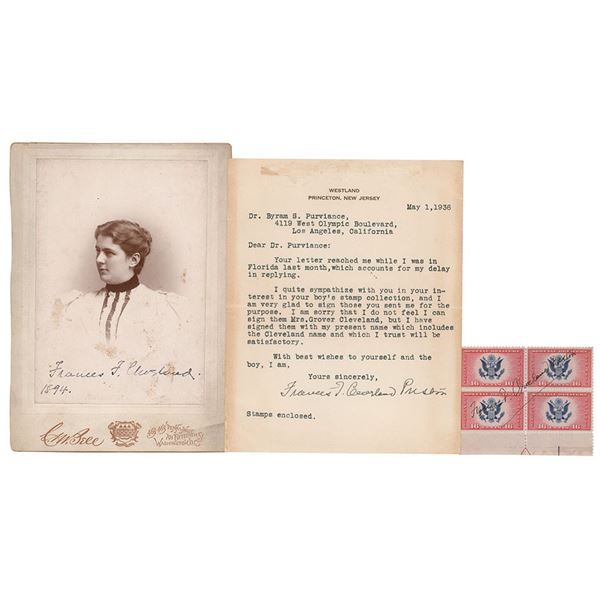 Frances F. Cleveland.
1894.
C.M. Bell
WESTLAND
PRINCETON, NEW JERSEY
May 1,1936
Dr. Byram S. Purviance,
4119 West Olympic Boulevard,
Los Angeles, California
Dear Dr. Purviance:
Your letter reached me while I was in
Florida last month,which accounts for my delay
in replying.
I quite sympathize with you in your in-
terest in your boy's stamp collection, and I
am very glad to sign those you sent me for the
purpose. I am sorry that I do not feel I can
sign them Mrs.Grover Cleveland, but I have
signed them with my present name which includes
the Cleveland name and which I trust will be
satisfactory.
With best wishes to yourself and the
boy, I am,
Yours sincerely,
Frances F. Cleveland Preston
Stamps enclosed.
16 16 16 16
16 16 16 16